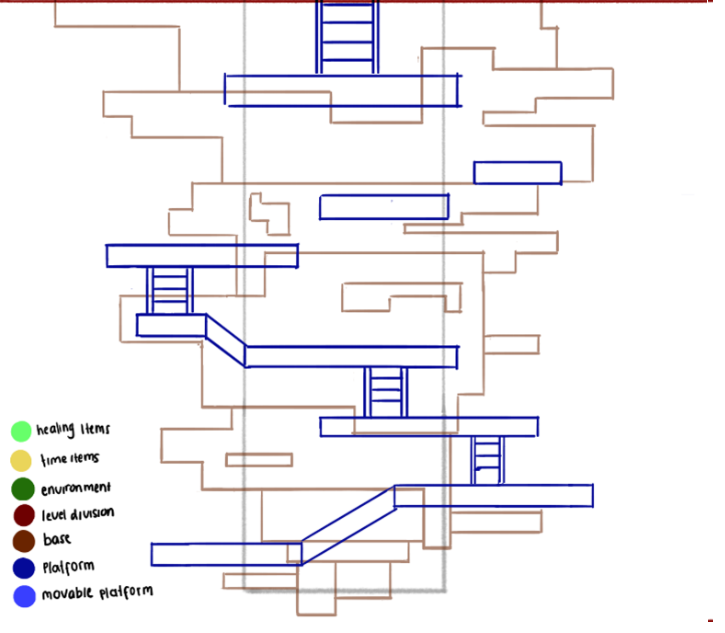 healing items
time items
environment
level division
base
Platform
movable platform